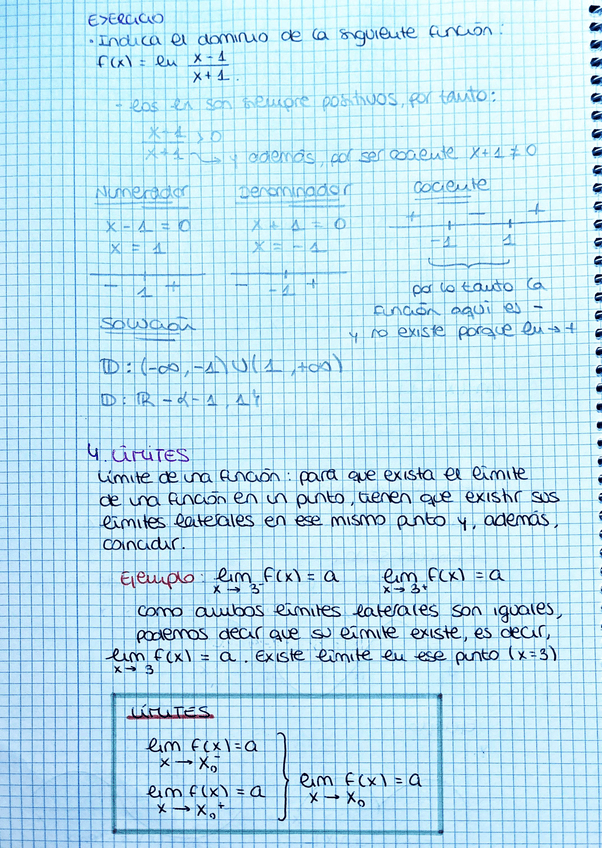 EJERCICIO
· Indica el dominio de la siguiente función:
f(x) = ln x-1 / x+1.
- los ln son siempre positivos, por tanto:
x-1 / x+1 > 0 → y además, por ser cociente x+1 ≠ 0
Numerador Denominador Cociente
x - 1 = 0 x + 1 = 0 + - +
x = 1 x = -1 -1 1
- 1 + - -1 + por lo tanto la
función aquí es -
Solución y no existe porque ln → +
D: (-∞, -1) ∪ (1, +∞)
D: ℝ - {-1, 1}
4. LÍMITES
Límite de una función: para que exista el límite
de una función en un punto, tienen que existir sus
límites laterales en ese mismo punto y, además,
coincidir.
Ejemplo: lim f(x) = a lim f(x) = a
x → 3⁻ x → 3⁺
como ambos límites laterales son iguales,
podemos decir que su límite existe, es decir,
lim f(x) = a. Existe límite en ese punto (x=3)
x → 3
LÍMITES
lim f(x) = a
x → x₀⁻
lim f(x) = a
x → x₀
lim f(x) = a
x → x₀⁺